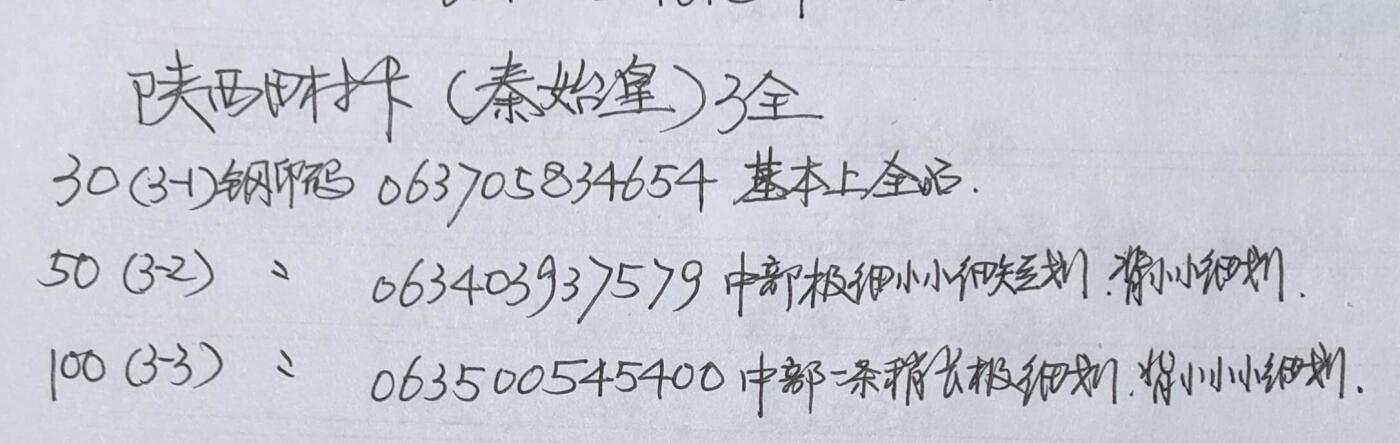 陕西田村卡（秦始皇）3全
30（3-1）钢印码 063705834654 基本上全品.
50（3-2） 〃 063403937579 中部极细小小细短划.背小小细划.
100（3-3） 〃 063500545400 中部一条稍长极细划.背小小小细划.